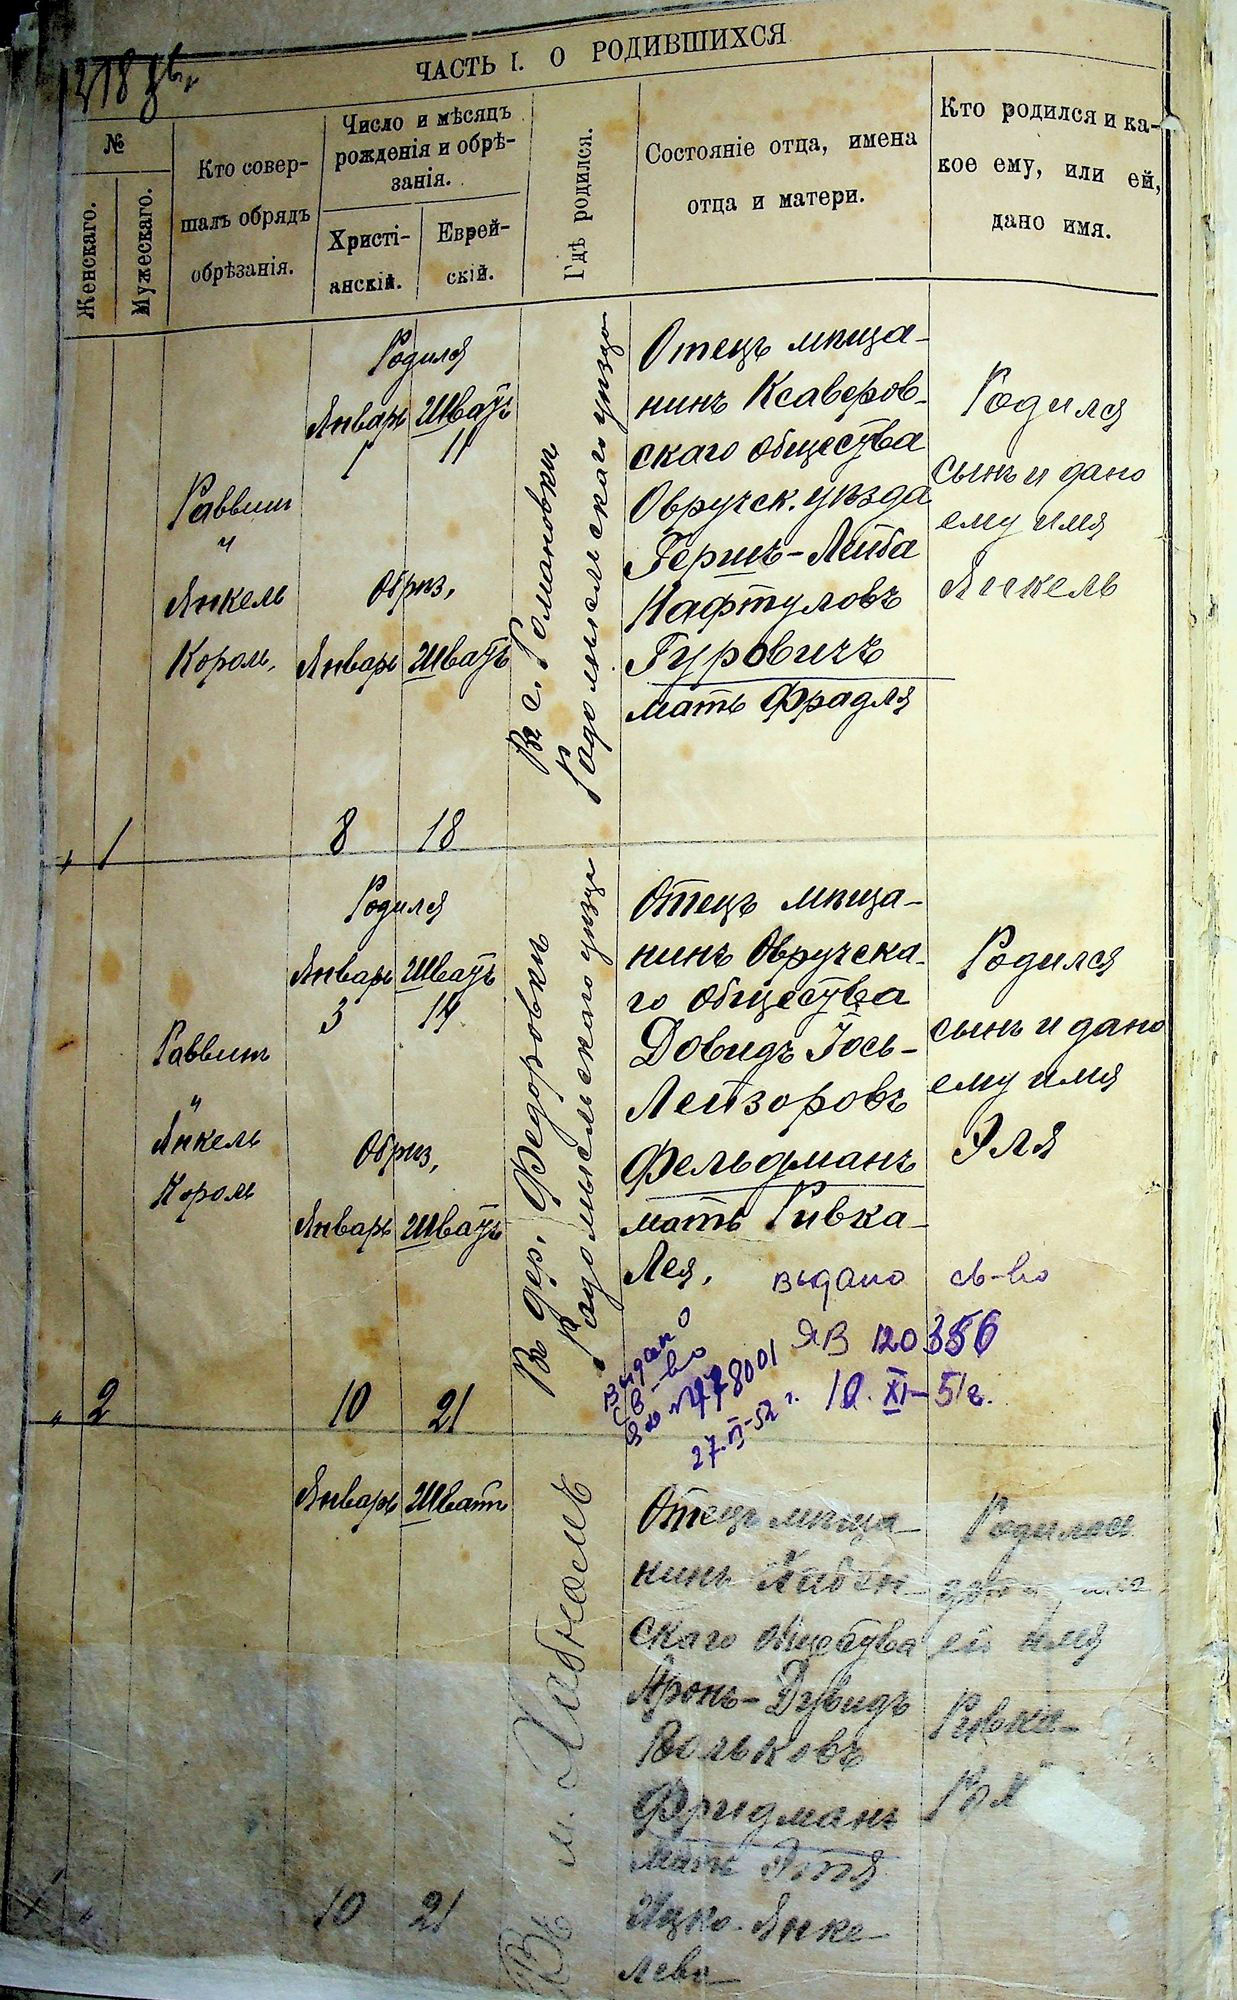 ЧАСТЬ I. О РОДИВШИХСЯ
№
Женскаго.
Мужескаго.
Кто совер-
шалъ обрядъ
обрѣзанія.
Число и мѣсяцъ
рожденія и обрѣ-
занія.
Христі-
анскій.
Еврей-
скій.
Гдѣ родился.
Состояніе отца, имена
отца и матери.
Кто родился и ка-
кое ему, или ей,
дано имя.
1
Раввинъ
и
Янкель
Король,
Родился
Январь Шватъ
1 11
Обрѣз,
Январь Шватъ
8 18
Въ с. Романовкѣ
Радомысльскаго уѣзда
Отецъ мѣща-
нинъ Ксаверов-
скаго общества
Овручск. уѣзда
Гершъ-Лейба
Нафтуловъ
Гуровичъ
мать Фрадля
Родился
сынъ и дано
ему имя
Янкель
„ 2
Раввинъ
и
Янкель
Король
Родился
Январь Шватъ
3 14
Обрѣз,
Январь Шватъ
10 21
Въ дер. Федоровкѣ
Радомысльскаго уѣзда
Отецъ мѣща-
нинъ Овручска-
го общества
Довидъ Іось-
Лейзоровъ
Фельдманъ
мать Ривка-
Лея,
Родился
сынъ и дано
ему имя
Эля
выдано св-во
ЯВ 120356
10. XI-51г.
Выдано
св-во
1 „
Январь Шватъ
10 21
Въ м. Хабномъ
Отецъ мѣща-
нинъ Хабен-
скаго общества
Аронъ-Дувидъ
Вольковъ
Фридманъ
мать Этля
Ицко-Янке-
лева
Родилась
ей имя
Ривка-